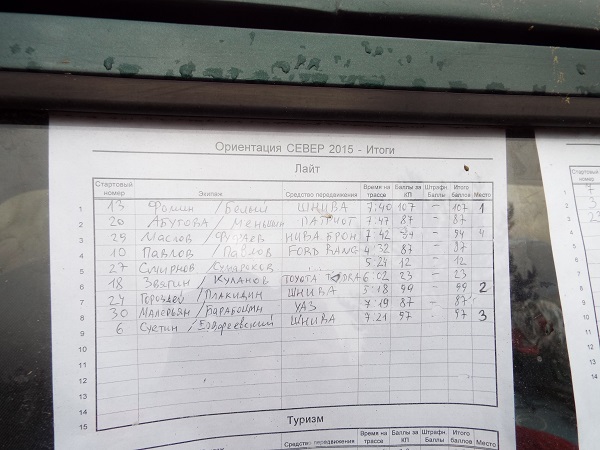 Ориентация СЕВЕР 2015 - Итоги
Лайт
Стартовый номер Экипаж Средство передвижения Время на трассе Баллы за КП Штрафн. Баллы Итого баллов Место
1 13 Фомин / Белый ШНИВА 7:40 107 – 107 1
2 20 Абутова / ПАТРИОТ 7:47 87 – 87
3 29 Маслов / НИВА БРОН 7 42 94 – 94 4
4 10 Павлов / Павлов FORD RANG 4 32 87 – 87
5 27 Смирнов / 5:24 12 – 12
6 18 Звягин / Куланов TOYOTA 6:02 23 – 23
7 24 / Плакидин ШНИВА 5:18 99 – 99 2
8 30 Малерьян / Барабошин УАЗ 7 19 87 – 87
9 6 Суетин / ШНИВА 7:21 97 – 97 3
10
11
12
13
14
15
Туризм
Средство передвижения Время на трассе Баллы за КП Штрафн. Баллы Итого баллов Место